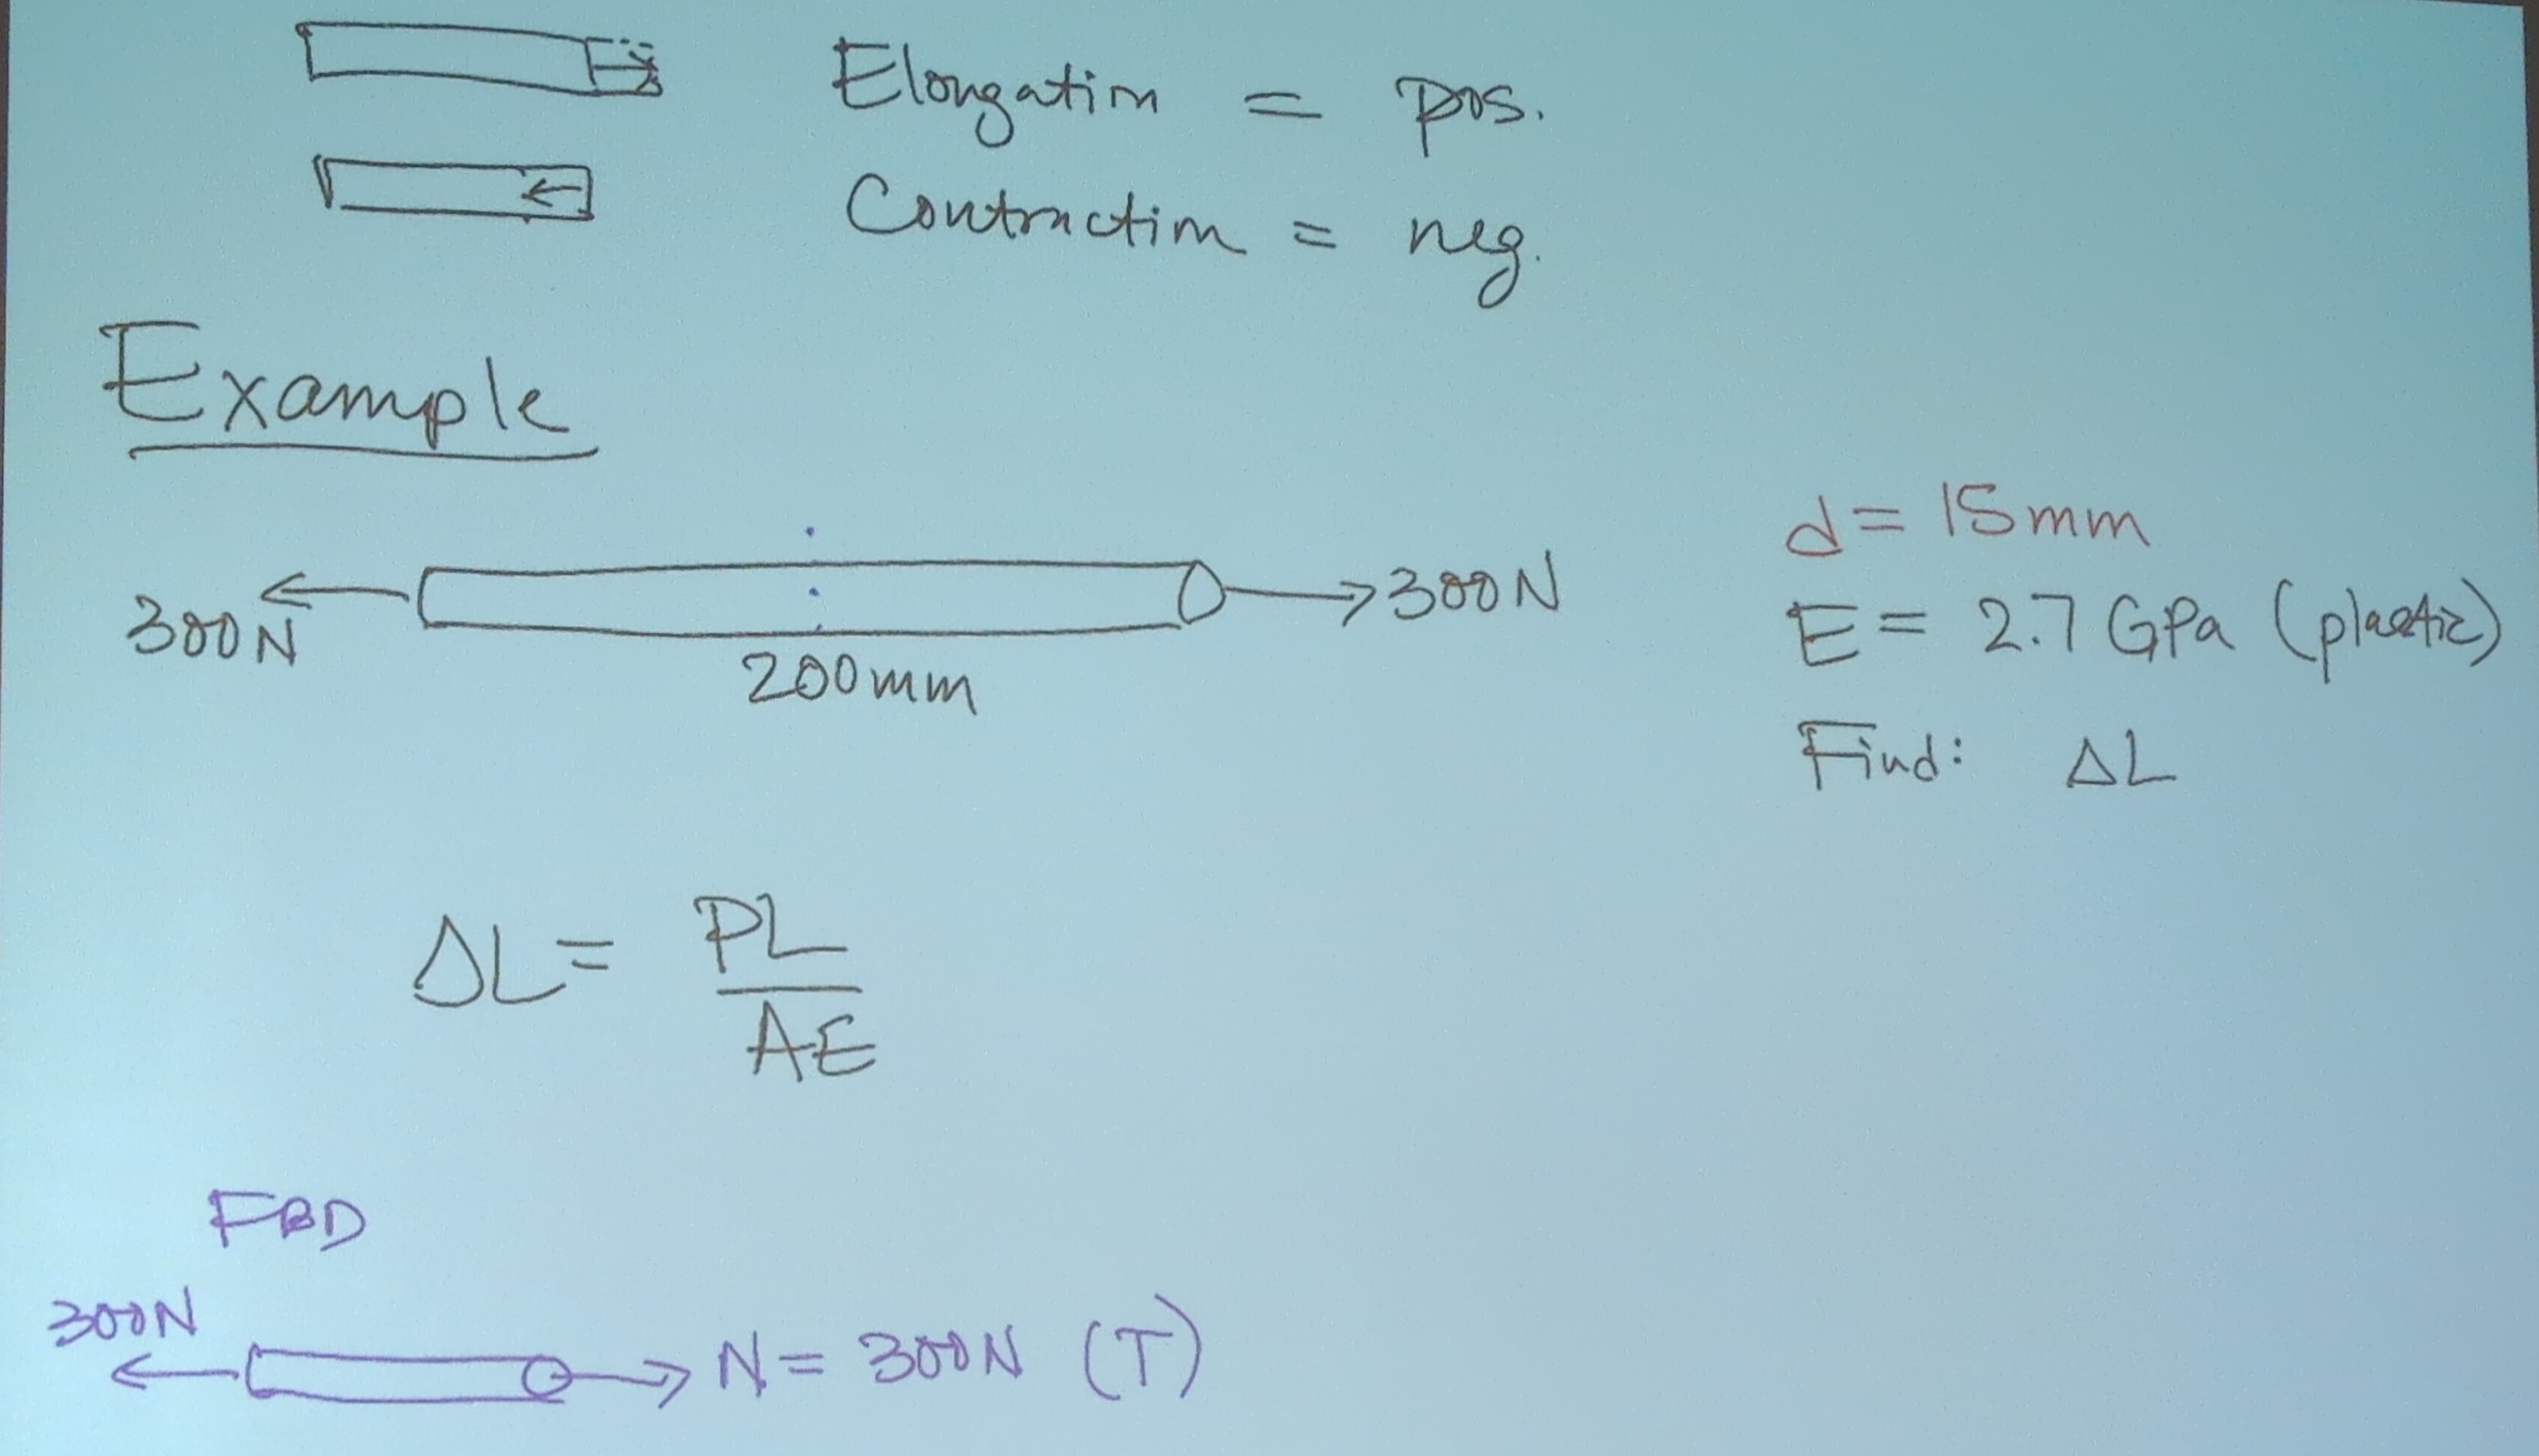 Elongation = pos.
Contraction = neg.
Example
300N
300N
200mm
d = 15mm
E = 2.7 GPa (plastic)
Find: ΔL
ΔL = PL
AE
FBD
300N
N = 300N (T)